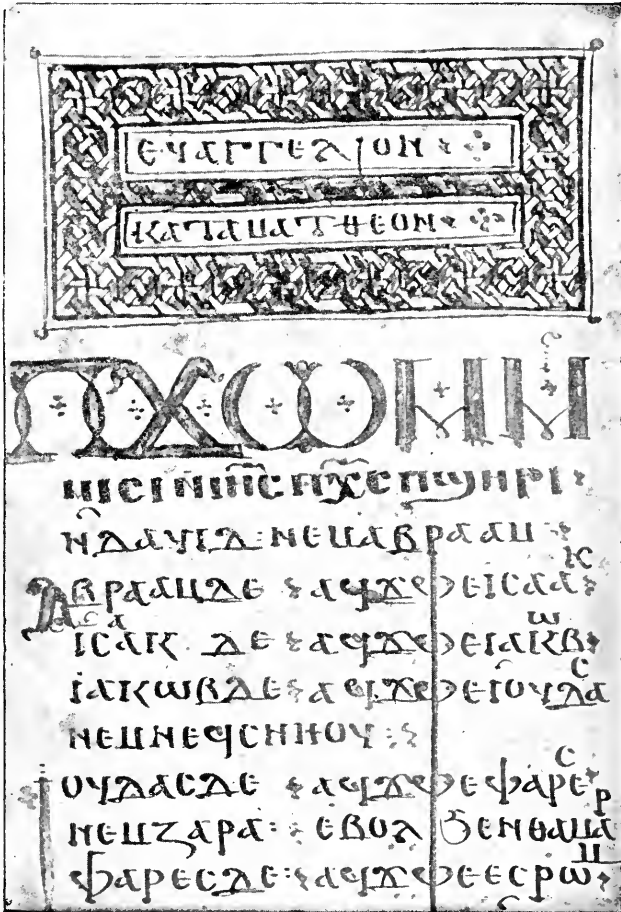 ⲉⲩⲁⲅⲅⲉⲗⲓⲟⲛ
ⲕⲁⲧⲁⲙⲁⲧⲑⲉⲟⲛ
ⲡϫⲱⲙⲙ
ⲙⲓⲥⲓ ⲛⲓⲏ̅ⲥ̅ ⲡⲭ̅ⲥ̅ ⲡϣⲏⲣⲓ
ⲛⲇⲁⲩⲓⲇ : ⲛⲉⲙⲁⲃⲣⲁⲁⲙ
ⲁⲃⲣⲁⲁⲙⲇⲉ ⲁϥϫⲫⲉⲓⲥⲁⲁⲕ
ⲓⲥⲁⲕ ⲇⲉ ⲁϥϫⲫⲉⲓⲁⲕⲱⲃ
ⲓⲁⲕⲱⲃⲇⲉ ⲁϥϫⲫⲉⲓⲟⲩⲇⲁⲥ
ⲛⲉⲙⲛⲉϥⲥⲛⲏⲟⲩ
ⲓⲟⲩⲇⲁⲥⲇⲉ ⲁϥϫⲫⲉⲫⲁⲣⲉⲥ
ⲛⲉⲙⲍⲁⲣⲁ : ⲉⲃⲟⲗ ϧⲉⲛⲑⲁⲙⲁⲣ
ⲫⲁⲣⲉⲥⲇⲉ : ⲁϥϫⲫⲉⲉⲥⲣⲱⲙ